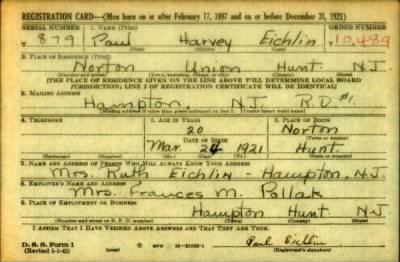 REGISTRATION CARD—(Men born on or after February 17, 1897 and on or before December 31, 1921)
SERIAL NUMBER 1. NAME (Print) ORDER NUMBER
S 879 Paul Harvey Eichlin 10,489
(First) (Middle) (Last)
2. PLACE OF RESIDENCE (Print)
Norton Union Hunt. N.J.
(Number and street) (Town, township, village, or city) (County) (State)
[THE PLACE OF RESIDENCE GIVEN ON THE LINE ABOVE WILL DETERMINE LOCAL BOARD
JURISDICTION; LINE 2 OF REGISTRATION CERTIFICATE WILL BE IDENTICAL]
3. MAILING ADDRESS
Hampton N.J. R.D. #1.
[Mailing address if other than place indicated on line 2. If same insert word same]
4. TELEPHONE 5. AGE IN YEARS 6. PLACE OF BIRTH
20 Norton
DATE OF BIRTH (Town or county)
Mar. 24 1921 Hunt.
(Exchange) (Number) (Mo.) (Day) (Yr.) (State or country)
7. NAME AND ADDRESS OF PERSON WHO WILL ALWAYS KNOW YOUR ADDRESS
Mrs. Ruth Eichlin - Hampton, N.J.
8. EMPLOYER'S NAME AND ADDRESS
Mrs. Frances M. Pollak
9. PLACE OF EMPLOYMENT OR BUSINESS
Hampton Hunt N.J.
(Number and street or R. F. D. number) (Town) (County) (State)
I AFFIRM THAT I HAVE VERIFIED ABOVE ANSWERS AND THAT THEY ARE TRUE.
D. S. S. Form 1
(Revised 1-1-42) (over) GPO 16-21630-1 Paul Eichlin
(Registrant's signature)